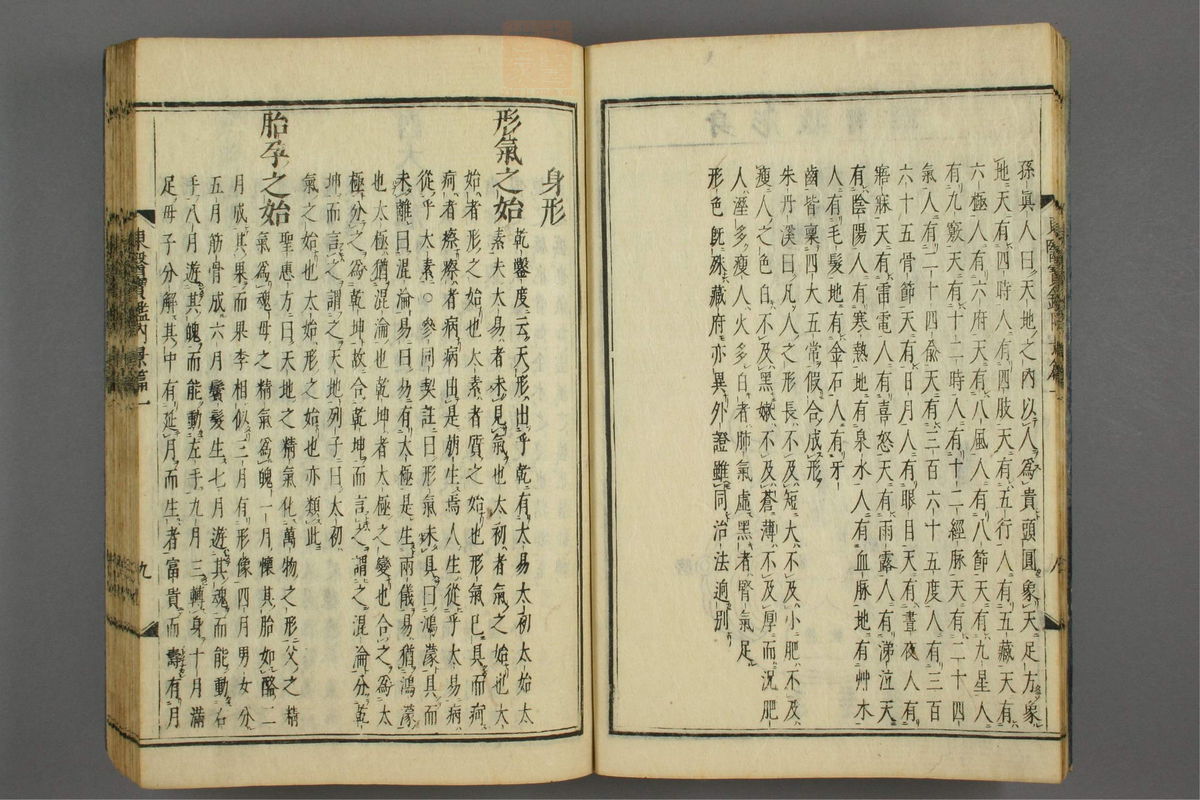 孫眞人曰天地之內以人爲貴頭圓象天足方象
地天有四時人有四肢天有五行人有五藏天有
六極人有六府天有八風人有八節天有九星人
有九竅天有十二時人有十二經脉天有二十四
氣人有二十四兪天有三百六十五度人有三百
六十五骨節天有日月人有眼目天有晝夜人有
寤寐天有雷電人有喜怒天有雨露人有涕泣天
有陰陽人有寒熱地有泉水人有血脉地有艸木
人有毛髮地有金石人有牙
齒皆稟四大五常假合成形
朱丹溪曰凡人之形長不及短大不及小肥不及
瘦人之色白不及黑嫩不及蒼薄不及厚而況肥
人溼多瘦人火多白者肺氣虛黑者腎氣足
形色旣殊藏府亦異外證雖同治法逈別
身形
形氣之始
乾鑿度云天形出乎乾有太易太初太始太
素夫太易者未見氣也太初者氣之始也太
始者形之始也太素者質之始也形氣已具而痾
痾者瘵瘵者病病由是萌生焉人生從乎太易病
從乎太素○參同契註曰形氣未具曰鴻濛具而
未離曰混淪易曰易有太極是生兩儀易猶鴻濛
也太極猶混淪也乾坤者太極之變也合之爲太
極分之爲乾坤故合乾坤而言之謂之混淪分乾
坤而言之謂之天地列子曰太初
氣之始也太始形之始也亦類此
胎孕之始
聖惠方曰天地之精氣化萬物之形父之精
氣爲魂母之精氣爲魄一月懷其胎如酪二
月成其果而果李相似三月有形像四月男女分
五月筋骨成六月鬢髮生七月遊其魂而能動右
手八月遊其魄而能動左手九月三轉身十月滿
足母子分解其中有延月而生者富貴而壽有月
東醫寶鑑內景篇一
九